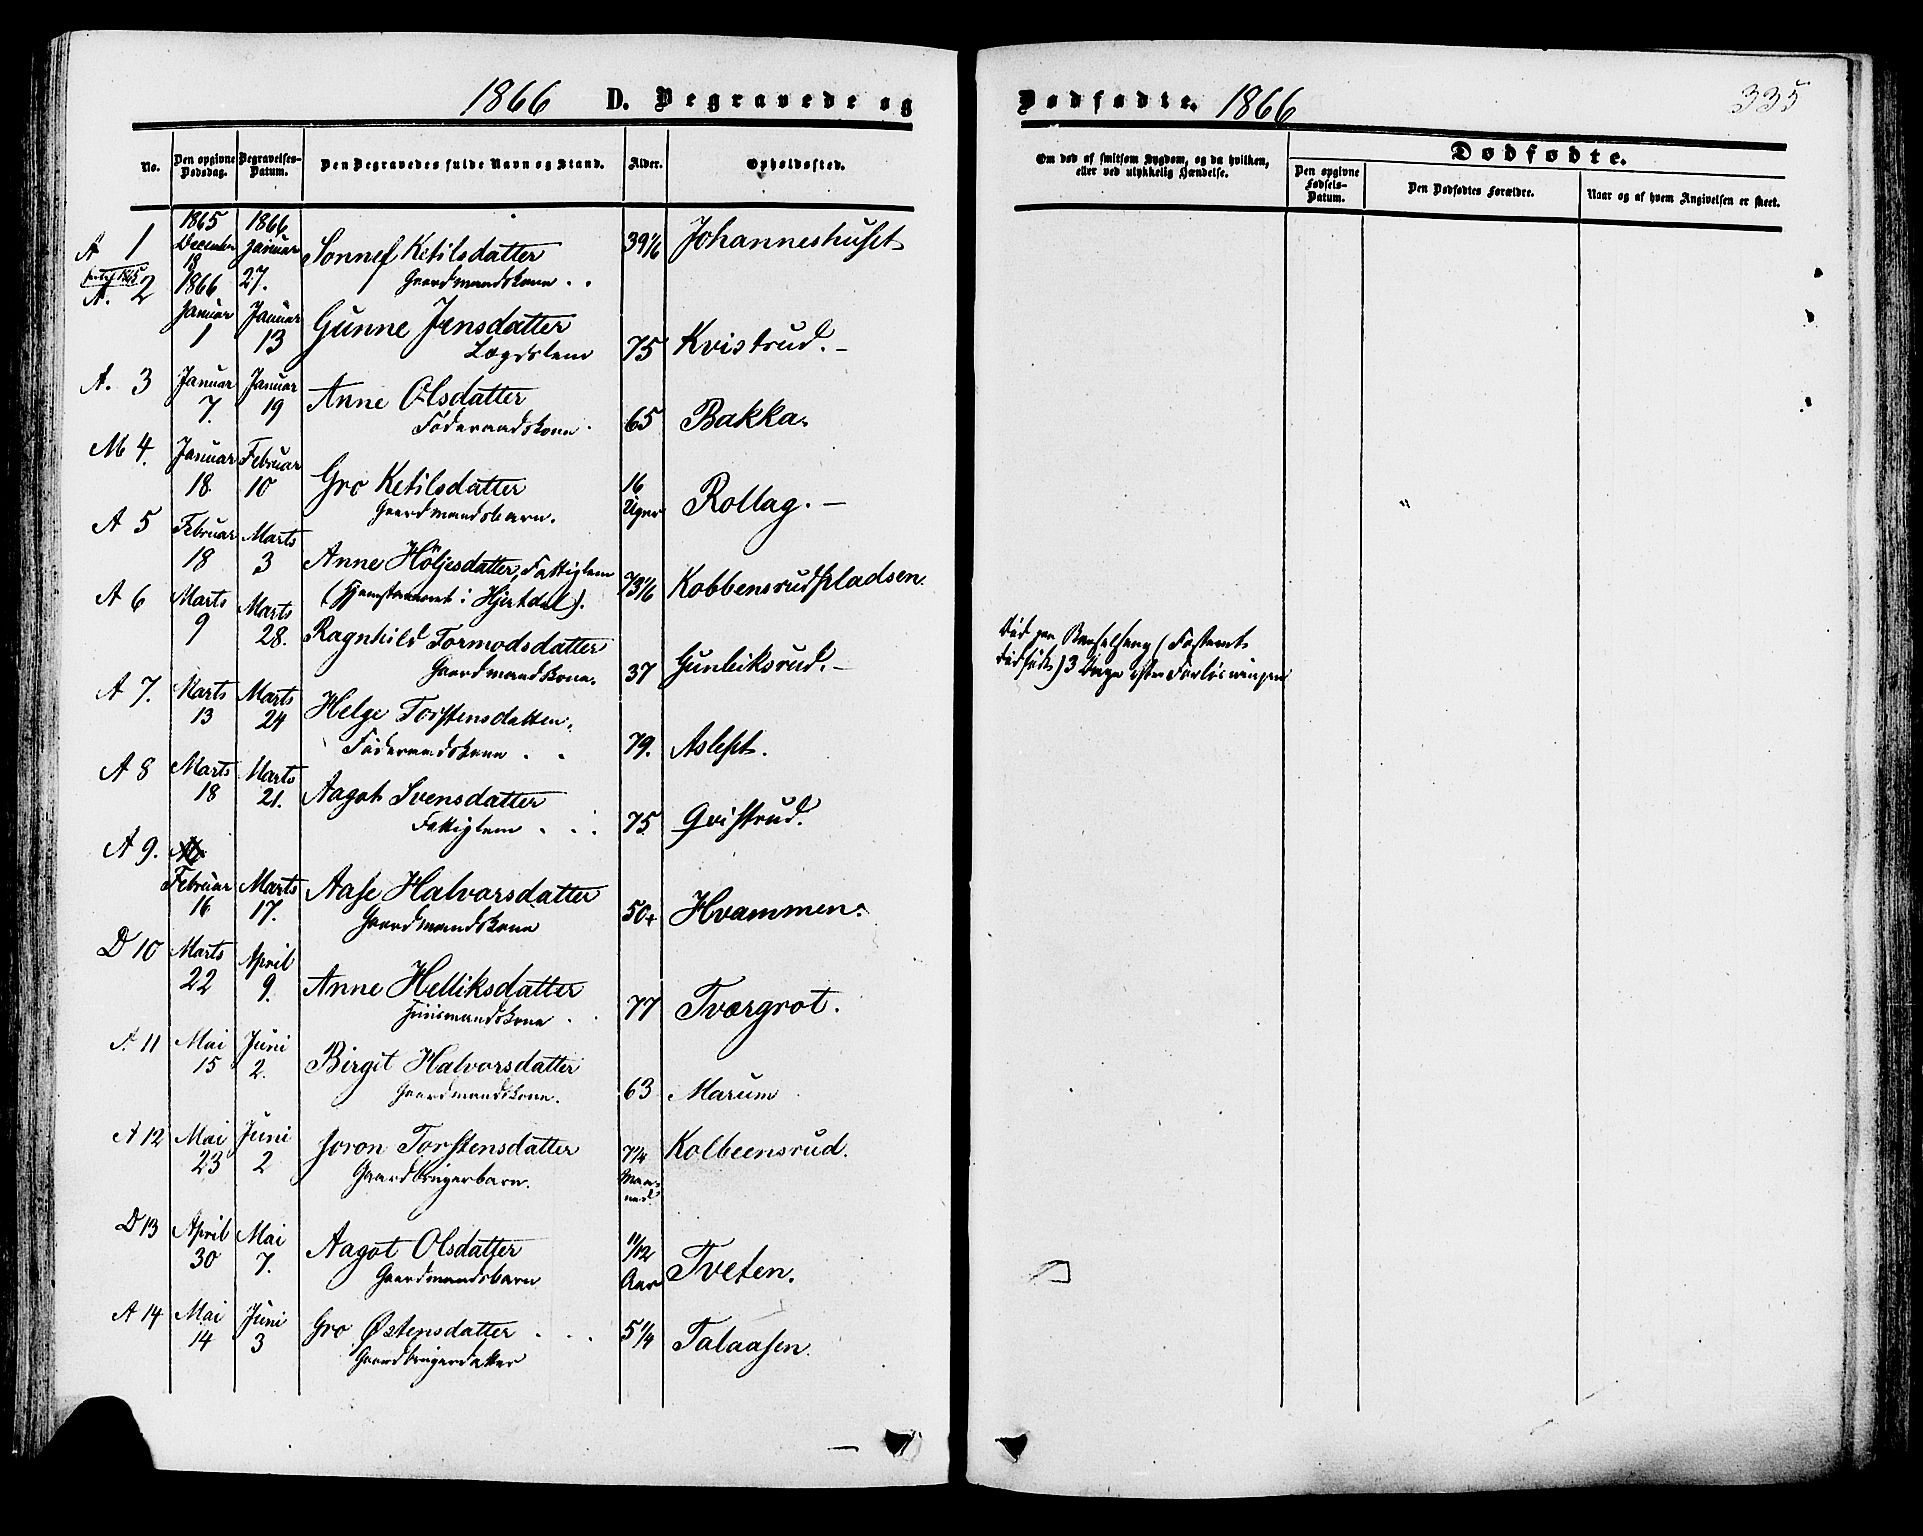 1866 D. Begravede og
No. Den opgivne Dødsdag. Begravelses-Datum. Den Begravedes fulde Navn og Stand. Alder. Opholdssted.
A 1 1865 December 18 1866 Januar 27. Sønnef Ketilsdatter 39 1/6 Johanneshuset
Gaardmandskone
A. 2 1866 Januar 1 Januar 13 Gunne Jensdatter 75 Kvistrud.
Lægdslem
A. 3 Januar 7. Januar 19 Anne Olsdatter 65 Bakka.
Føderaadskone
M 4. Januar 18 Februar 10 Gro Ketilsdatter 16 Uger Rollag.
Gaardmandsbarn.
A 5 Februar 18 Marts 3 Anne Höljesdatter, Fattiglem 73 1/6 Kobbensrudpladsen
(Hjemstavnsret i Hjertdal).
A 6 Marts 9 Marts 28. Ragnhild Tormodsdatter 37 Gunleiksrud.
Gaardmandskone.
A 7. Marts 13 Marts 24 Helge Torstensdatter. 79. Aslest.
Føderaadskone
A 8 Marts 18 Marts 21. Aagot Svensdatter 75 Qvistrud.
Fattiglem
A 9. Februar 16 Marts 17. Aase Halvorsdatter 50+ Hvammen.
Gaardmandskone
D 10 Marts 22 April 9. Anne Helliksdatter 77 Tværgrot.
Huusmandskone
A 11 Mai 15 Juni 2. Birgit Halvorsdatter 63 Marum
Gaardmandskone.
A 12 Mai 23 Juni 2 Joron Torstensdatter 7 1/4 Maaned Kolbeensrud.
Gaardbrugerbarn.
D 13 April 30 Mai 7. Aagot Olsdatter 11/12 Aar Tveten.
Gaardmandsbarn
A 14 Mai 14 Juni 3 Gro Østensdatter 5 1/4 Talaasen.
Gaardbrugerdatter
Dødfødte. 1866 335
Om død af smitsom Sygdom, og da hvilken, eller ved ulykkelig Hændelse. Dødfødte.
Den opgivne Fødsels-Datum. Den Dødfødtes Forældre. Naar og af hvem Angivelsen er skeet.
Død paa Barselseng (Fosteret
dødfødt) 3 Dage efter Forløsningen